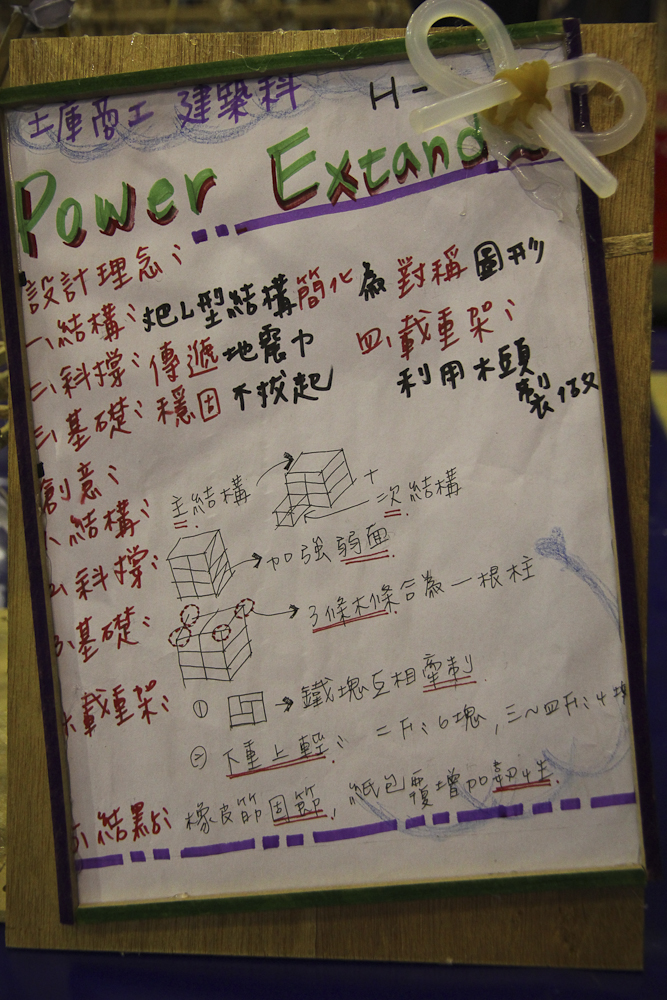 土庫商工 建築科 H-
Power Extand
設計理念:
一、結構: 把L型結構簡化為對稱圖形
二、斜撐: 傳遞地震力
三、基礎: 穩固不拔起
四、載重架:
利用木頭
製做
創意:
1、結構: 主結構 + 二次結構
2、斜撐: 加強弱面
3、基礎: 3條木條合為一根柱
4、載重架: ① 鐵塊互相牽制
② 下重上輕: 二F: 6塊, 三~四F: 4塊
5、結點: 橡皮筋固節, 紙包覆增加韌性